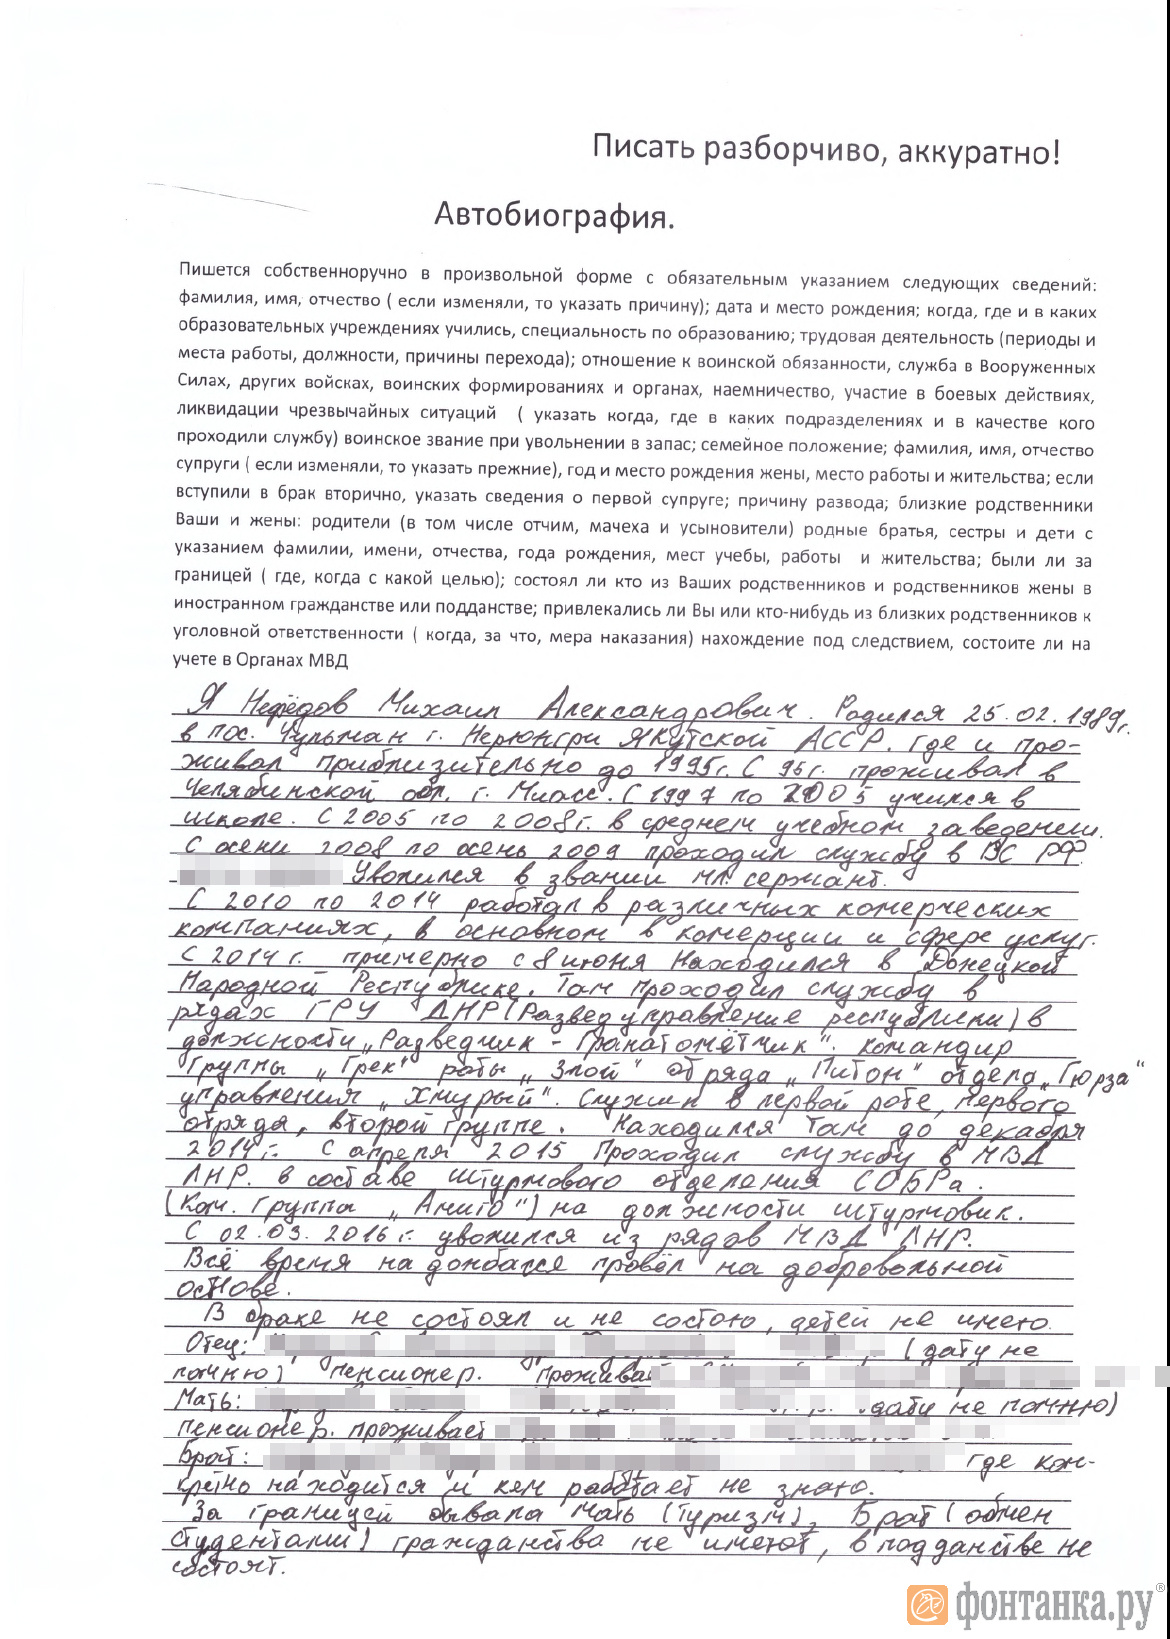 Писать разборчиво, аккуратно!
Автобиография.
Пишется собственноручно в произвольной форме с обязательным указанием следующих сведений:
фамилия, имя, отчество ( если изменяли, то указать причину); дата и место рождения; когда, где и в каких
образовательных учреждениях учились, специальность по образованию; трудовая деятельность (периоды и
места работы, должности, причины перехода); отношение к воинской обязанности, служба в Вооруженных
Силах, других войсках, воинских формированиях и органах, наемничество, участие в боевых действиях,
ликвидации чрезвычайных ситуаций ( указать когда, где в каких подразделениях и в качестве кого
проходили службу) воинское звание при увольнении в запас; семейное положение; фамилия, имя, отчество
супруги ( если изменяли, то указать прежние), год и место рождения жены, место работы и жительства; если
вступили в брак вторично, указать сведения о первой супруге; причину развода; близкие родственники
Ваши и жены: родители (в том числе отчим, мачеха и усыновители) родные братья, сестры и дети с
указанием фамилии, имени, отчества, года рождения, мест учебы, работы и жительства; были ли за
границей ( где, когда с какой целью); состоял ли кто из Ваших родственников и родственников жены в
иностранном гражданстве или подданстве; привлекались ли Вы или кто-нибудь из близких родственников к
уголовной ответственности ( когда, за что, мера наказания) нахождение под следствием, состоите ли на
учете в Органах МВД
Я Нефёдов Михаил Александрович. Родился 25.02.1989г.
в пос. Чульман г. Нерюнгри Якутской АССР. где и про-
живал приблизительно до 1995г. С 95г. проживал в
Челябинской обл. г. Миасс. С 1997 по 2005 учился в
школе. С 2005 по 2008г. в среднем учебном заведении.
С осени 2008 по осень 2009 проходил службу в ВС РФ.
Уволился в звании мл. сержант.
С 2010 по 2014 работал в различных комерческих
компаниях, в основном в комерции и сфере услуг.
С 2014г. примерно с 8 июня находился в Донецкой
Народной Республике. Там проходил службу в
рядах ГРУ ДНР (Развед управление республики) в
должности „Разведчик - Гранатомётчик". командир
Группы „Грек" роты „Злой" отряда „Питон" отдела „Гюрза"
управления „Хмурый". Служил в первой роте, первого
отряда, второй группе. Находился там до декабря
2014г. С апреля 2015 проходил службу в МВД
ЛНР. в составе штурмового отделения СОБРа.
(Ком. Группы „Амиго") на должности штурмовик.
С 02.03.2016г. уволился из рядов МВД ЛНР.
Всё время на донбассе провёл на добровольной
основе.
В браке не состоял и не состою, детей не имею.
Отец: (дату не
помню) пенсионер. Прожива
Мать: (дату не помню)
пенсионер. проживает
Брат: где кон-
кретно находится и кем работает не знаю.
За границей бывала мать (туризм), Брат (обмен
студентами) гражданства не имеют, в подданстве не
состоят.
фонтанка.ру®